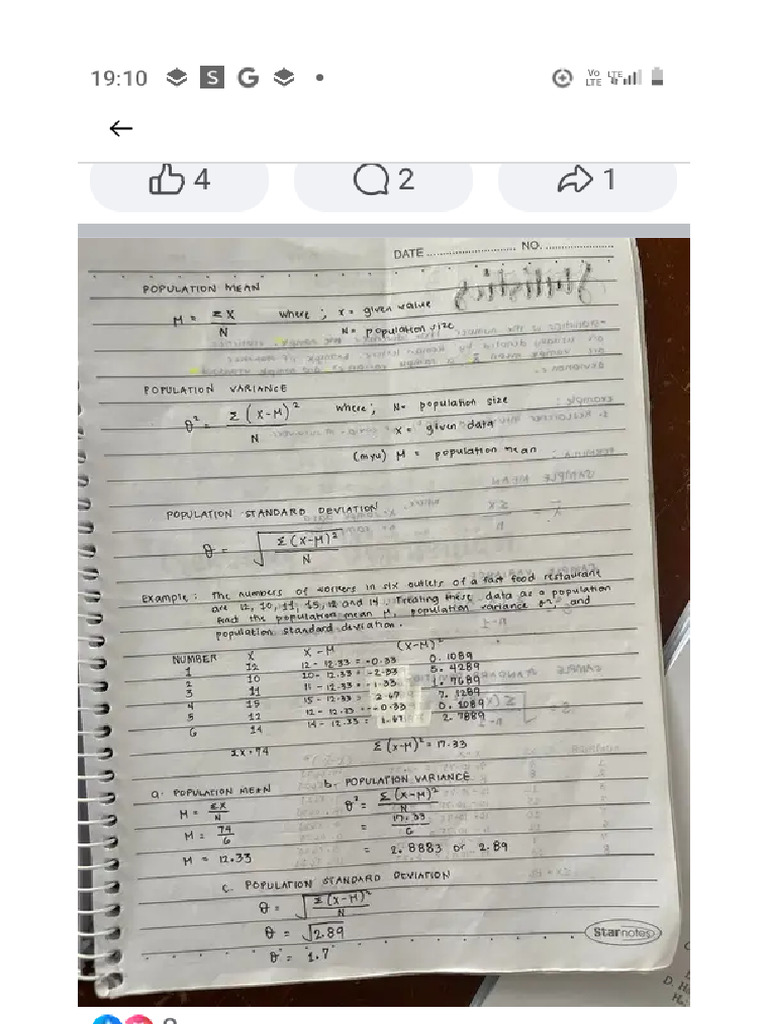 19:10 S G
Vo LTE LTE
4 2 1
DATE NO.
POPULATION MEAN
M = ΣX / N where ; x = given value
N = population size
POPULATION VARIANCE
σ² = Σ (X-M)² / N where ; N - population size
X = given data
(myu) M = population mean
POPULATION STANDARD DEVIATION
σ = √ Σ(X-M)² / N
Example : The numbers of workers in six outlets of a fast food restaurant
are 12, 10, 11, 15, 12 and 14 . Treating these data as a population
find the population mean M, population variance σ², and
population standard deviation .
NUMBER X X - M (X-M)²
1 12 12 - 12.33 = -0.33 0.1089
2 10 10 - 12.33 = -2.33 5.4289
3 11 11 - 12.33 = -1.33 1.7689
4 15 15 - 12.33 = 2.67 7.1289
5 12 12 - 12.33 = -0.33 0.1089
6 14 14 - 12.33 = 1.67 2.7889
ΣX = 74 Σ(x-M)² = 17.33
a. POPULATION MEAN b. POPULATION VARIANCE
M = ΣX / N σ² = Σ (X-M)² / N
M = 74 / 6 = 17.33 / 6
M = 12.33 = 2.8883 or 2.89
c. POPULATION STANDARD DEVIATION
σ = √ Σ(X-M)² / N
σ = √2.89
σ = 1.7
Starnotes